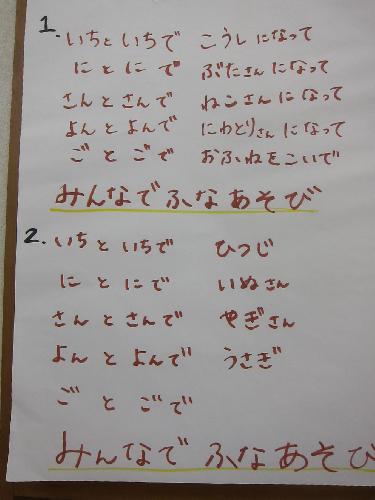 1. いちといちで こうしになって
にとにで ぶたさんになって
さんとさんで ねこさんになって
よんとよんで にわとりさんになって
ごとごで おふねをこいで
みんなでふなあそび
2. いちといちで ひつじ
にとにで いぬさん
さんとさんで やぎさん
よんとよんで うさぎ
ごとごで
みんなでふなあそび